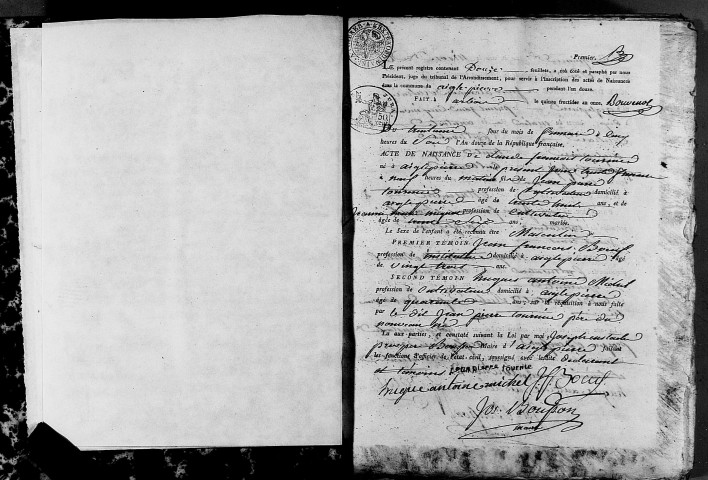 Premier.
Le présent registre contenant Douze feuillets, a été coté et paraphé par nous
Président, juge du tribunal de l'Arrondissement, pour servir à l'inscription des actes de Naissances
dans la commune du aiglepierre pendant l'an douze.
FAIT à arbois le quinze fructidor an onze. Bouvenot
Du trentième jour du mois de frimaire à cinq
heures du Soir l'An douze de la République française.
ACTE DE NAISSANCE de Claude françois tournier
né à aiglepierre le present jour trente frimaire
à neuf heures du matin fils de Jean pierre
tournier profession de Cultivateur domicilié à
aiglepierre âgé de trente huit ans, et de
Jeanne profession de Cultivateur
âgée de trente ans, mariés.
Le Sexe de l'enfant a été reconnu être Masculin
PREMIER TÉMOIN Jean francois
profession de instituteur domicilié à aiglepierre âgé
de Vingt trois ans.
SECOND TÉMOIN hugues antoine Michel
profession de Cultivateur domicilié à aiglepierre
âgé de quarante ans; sur la réquisition à nous faite
par le dit Jean pierre tournier père du
nouveau né
Lu aux parties, et constaté suivant la Loi par moi Joseph
prosper Bousson Maire d'aiglepierre faisant
les fonctions d'officier de l'état-civil, soussigné avec lesdits declarant
et témoins Jean pierre tournie
hugue antoine michel
Jos. Bousson
maire